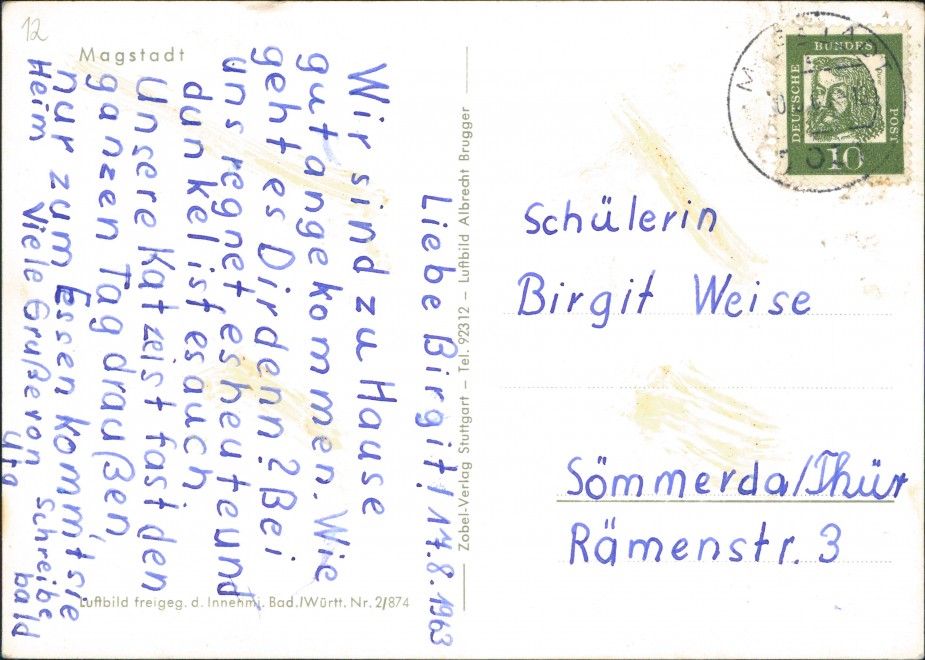 12
Magstadt
Liebe Birgit! 17.8.1963
Wir sind zu Hause
gut angekommen. Wie
geht es Dir denn? Bei
uns regnet es heute und
dunkel ist es auch.
Unsere Katze ist fast den
ganzen Tag draußen,
nur zum Essen kommt sie
Heim Viele Grüße von
Uta
schreibe bald
Luftbild freigeg. d. Innenmi. Bad./Württ. Nr. 2/874
Zobel-Verlag Stuttgart – Tel. 92312 – Luftbild Albrecht Brugger
DEUTSCHE
BUNDES
POST
10
Schülerin
Birgit Weise
Sömmerda/Thür
Rämenstr. 3